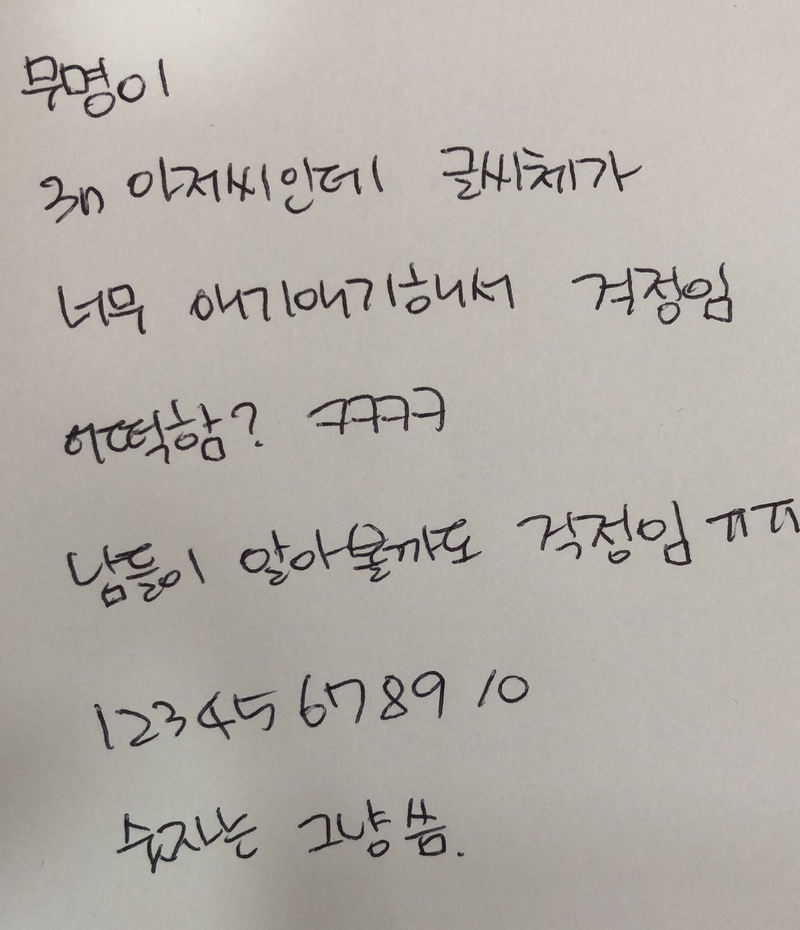 무명이
3n 아저씨인데 글씨체가
너무 애기애기해서 걱정임
어떡함? ㅋㅋㅋㅋ
남들이 알아볼까도 걱정임 ㅠㅠ
123456789 10
숫자는 그냥 씀.